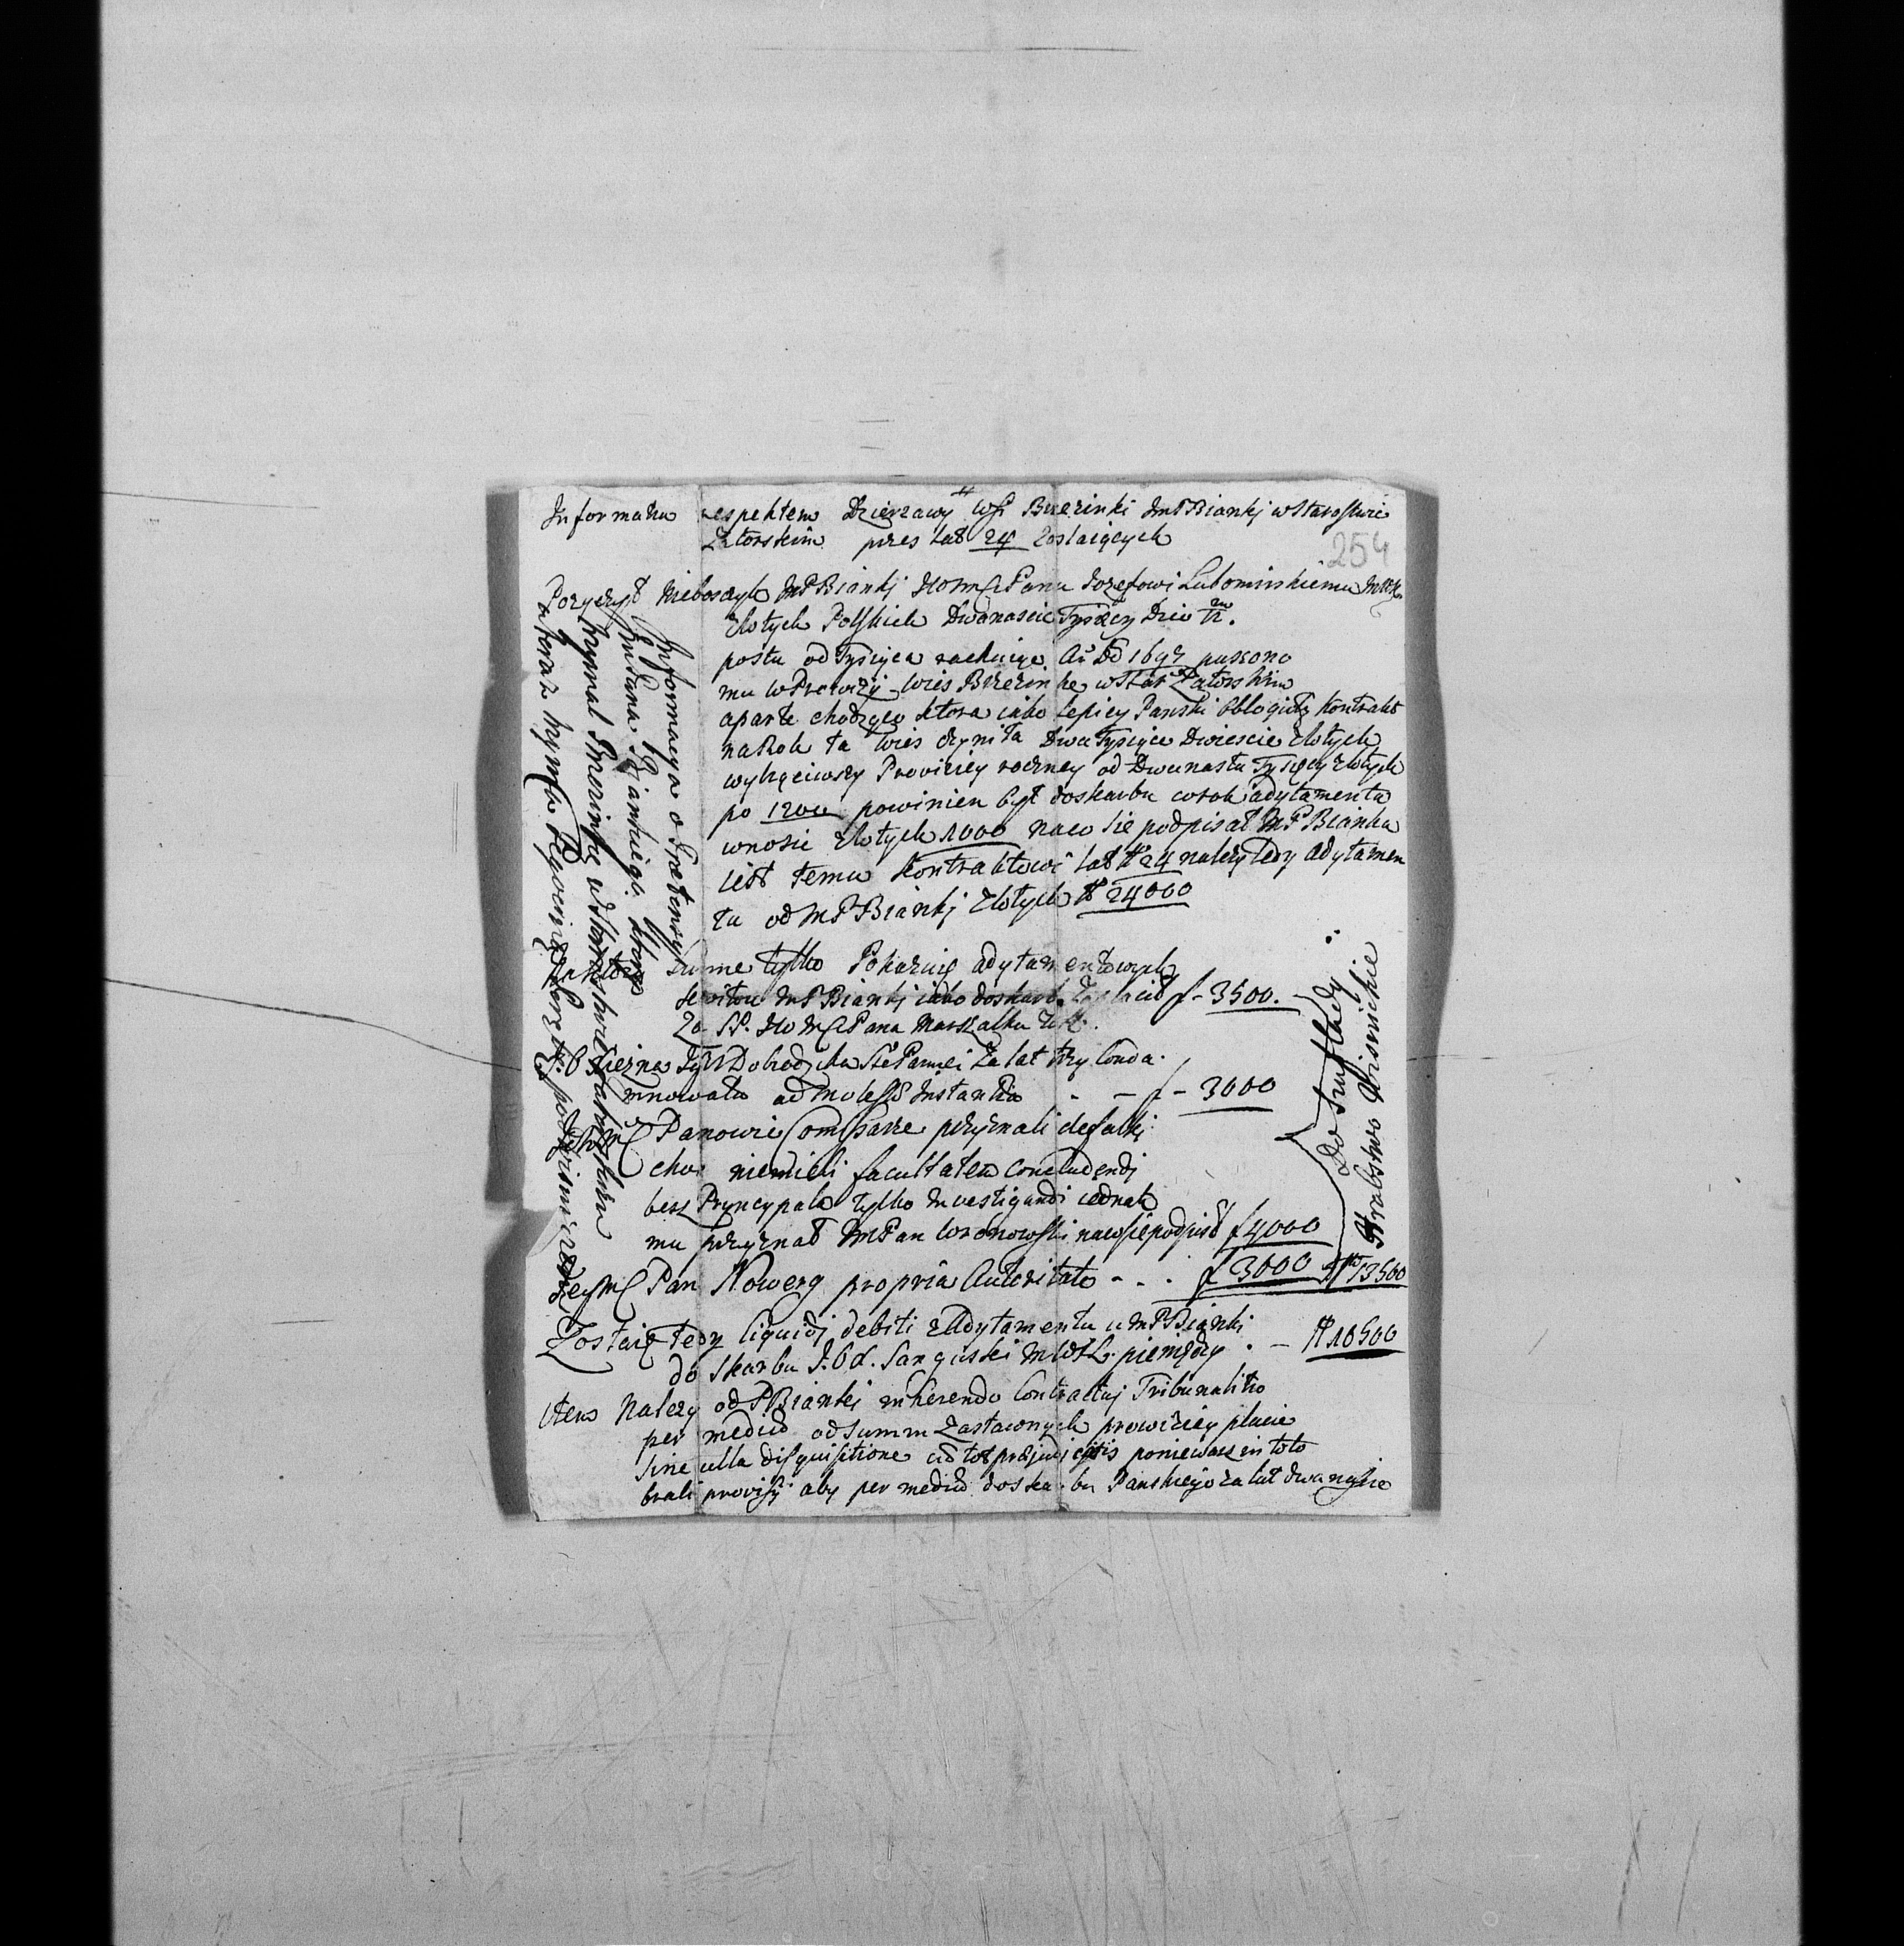 Informatia respektem Dzierzawy Wsi Brzezinki ImP Bianki w Starostwie
Zatorskim przes lat 24 Zostaiących
254
Pozyczył Nieboszyk ImP Bianki JoMCi Panu Jozefowi Lubomirskiemu MWK.
Złotych Polskich Dwanascie Tysięcy Dzie
postu od Tysięca rachuięc. A° Do 1697 puszono
mu w Prowizij Wies Brzezinke w Star Zatorskim
aparte chodzącą ktora iako lepiey Panski Obloguię Kontrakt
na Rok ta Wies czyniła Dwa Tysiące Dwiescie Złotych
wytrąciwszy Proviziey roczney od Dwunastu Tysięcy złotych
po 1200 powinien był doskarbu corok adytamentu
wnosic Złotych 1000 naco sie podpisał MP Bianka
iest temu Kontraktowi lat 24 nalezy tedy adytamen
tu od MP Bianki Złotych 24000
Summe tylko Pokazuię adytamentowych
kwitow MP Bianki iako doskarb. Zapłacił f - 3500.
Za S.P. Jo MCi Pana Marszałka WK.
J.O Xiezna Dobrodzika Ste Pamiei Za lat trzy Conda.
mnowała ad Instantia - - f - 3000
Panowie Comissarze przyznali defalki
choc niemieli facultatem Concludendi
besz Pryncypała tylko Investigandi iednak
mu przyznał ImPan Woronowski naco sie podpisał f 4000
Jego MC Pan Nowerg propria Autoritate - . . f 3000 13500
Zostaie tedy liquidi debiti z Adytamentu u ImP Bianki
do Skarbu J.O X. Sanguski MWXL. pieniędzy . - 10500
Item Nalezy od P Bianki inherendo Contractui Tribunalitio
per mediũ od Summ Zastawnych prowiziey płacic
sine ulla disquisitione ad tot poniewasz in toto
brali provisÿ aby per mediũ doskarbu Panskiego za lat dwanascie
Informacya o Pretensyi
ImPana Biankiego ktory
trzymał Brzezinkę w Starostwie Zatorskim
a teraz trzyma
Do Sufflady
Hrabstwo Wisnickie